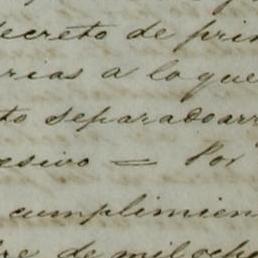 decreto de prim
rias a lo que
to separado arr
esivo = Por
cumplimien
bre de mil ocho